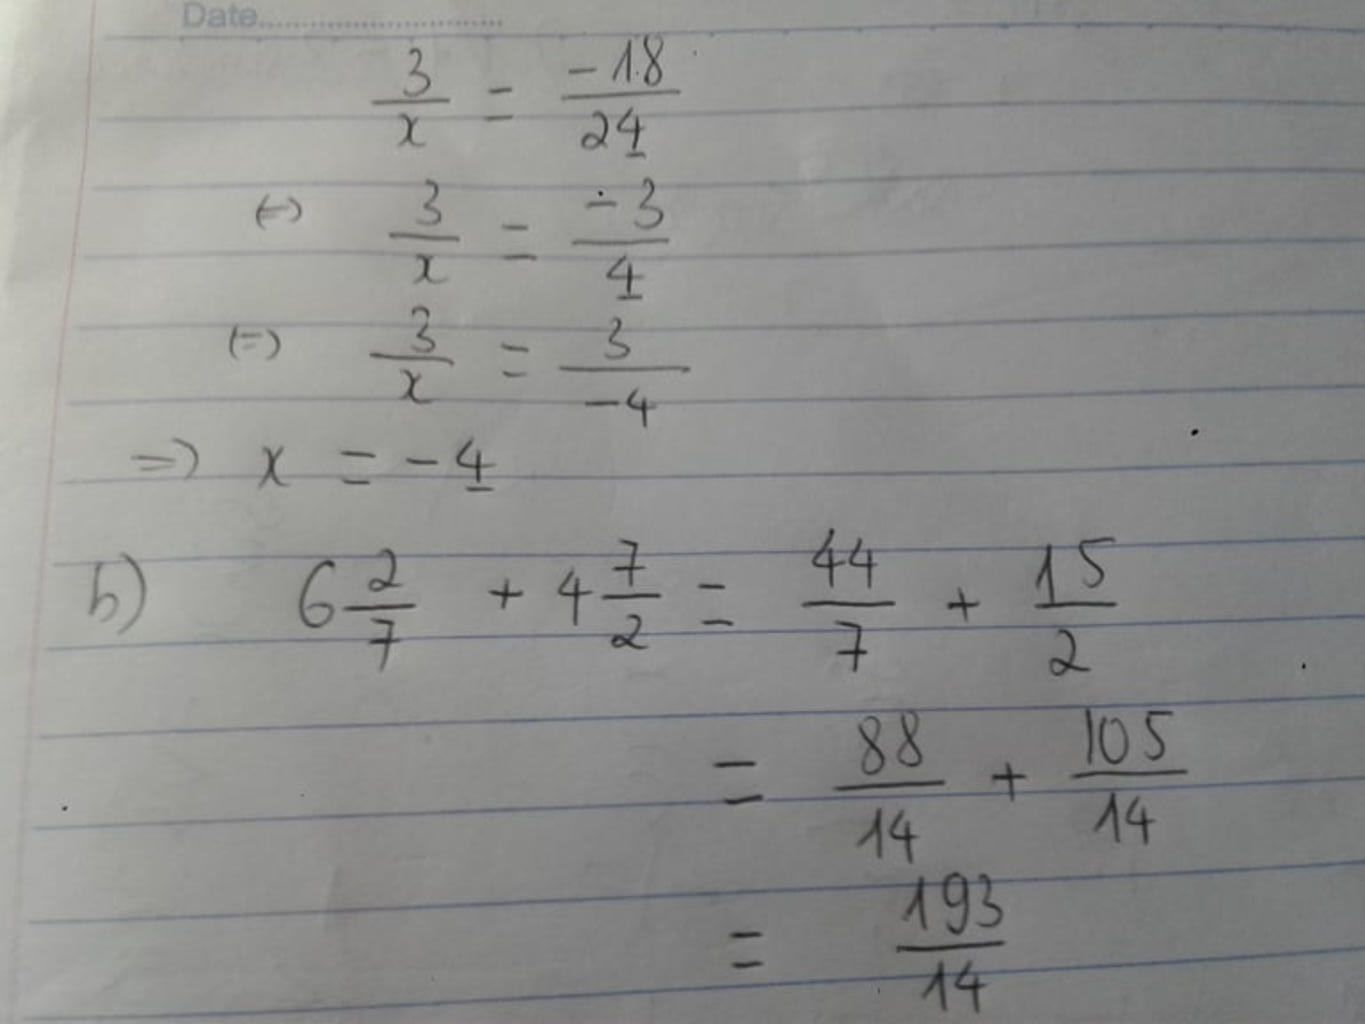 Date
3/x = -18/24
(=) 3/x = -3/4
(=) 3/x = 3/-4
=) x = -4
b) 6 2/7 + 4 7/2 = 44/7 + 15/2
= 88/14 + 105/14
= 193/14